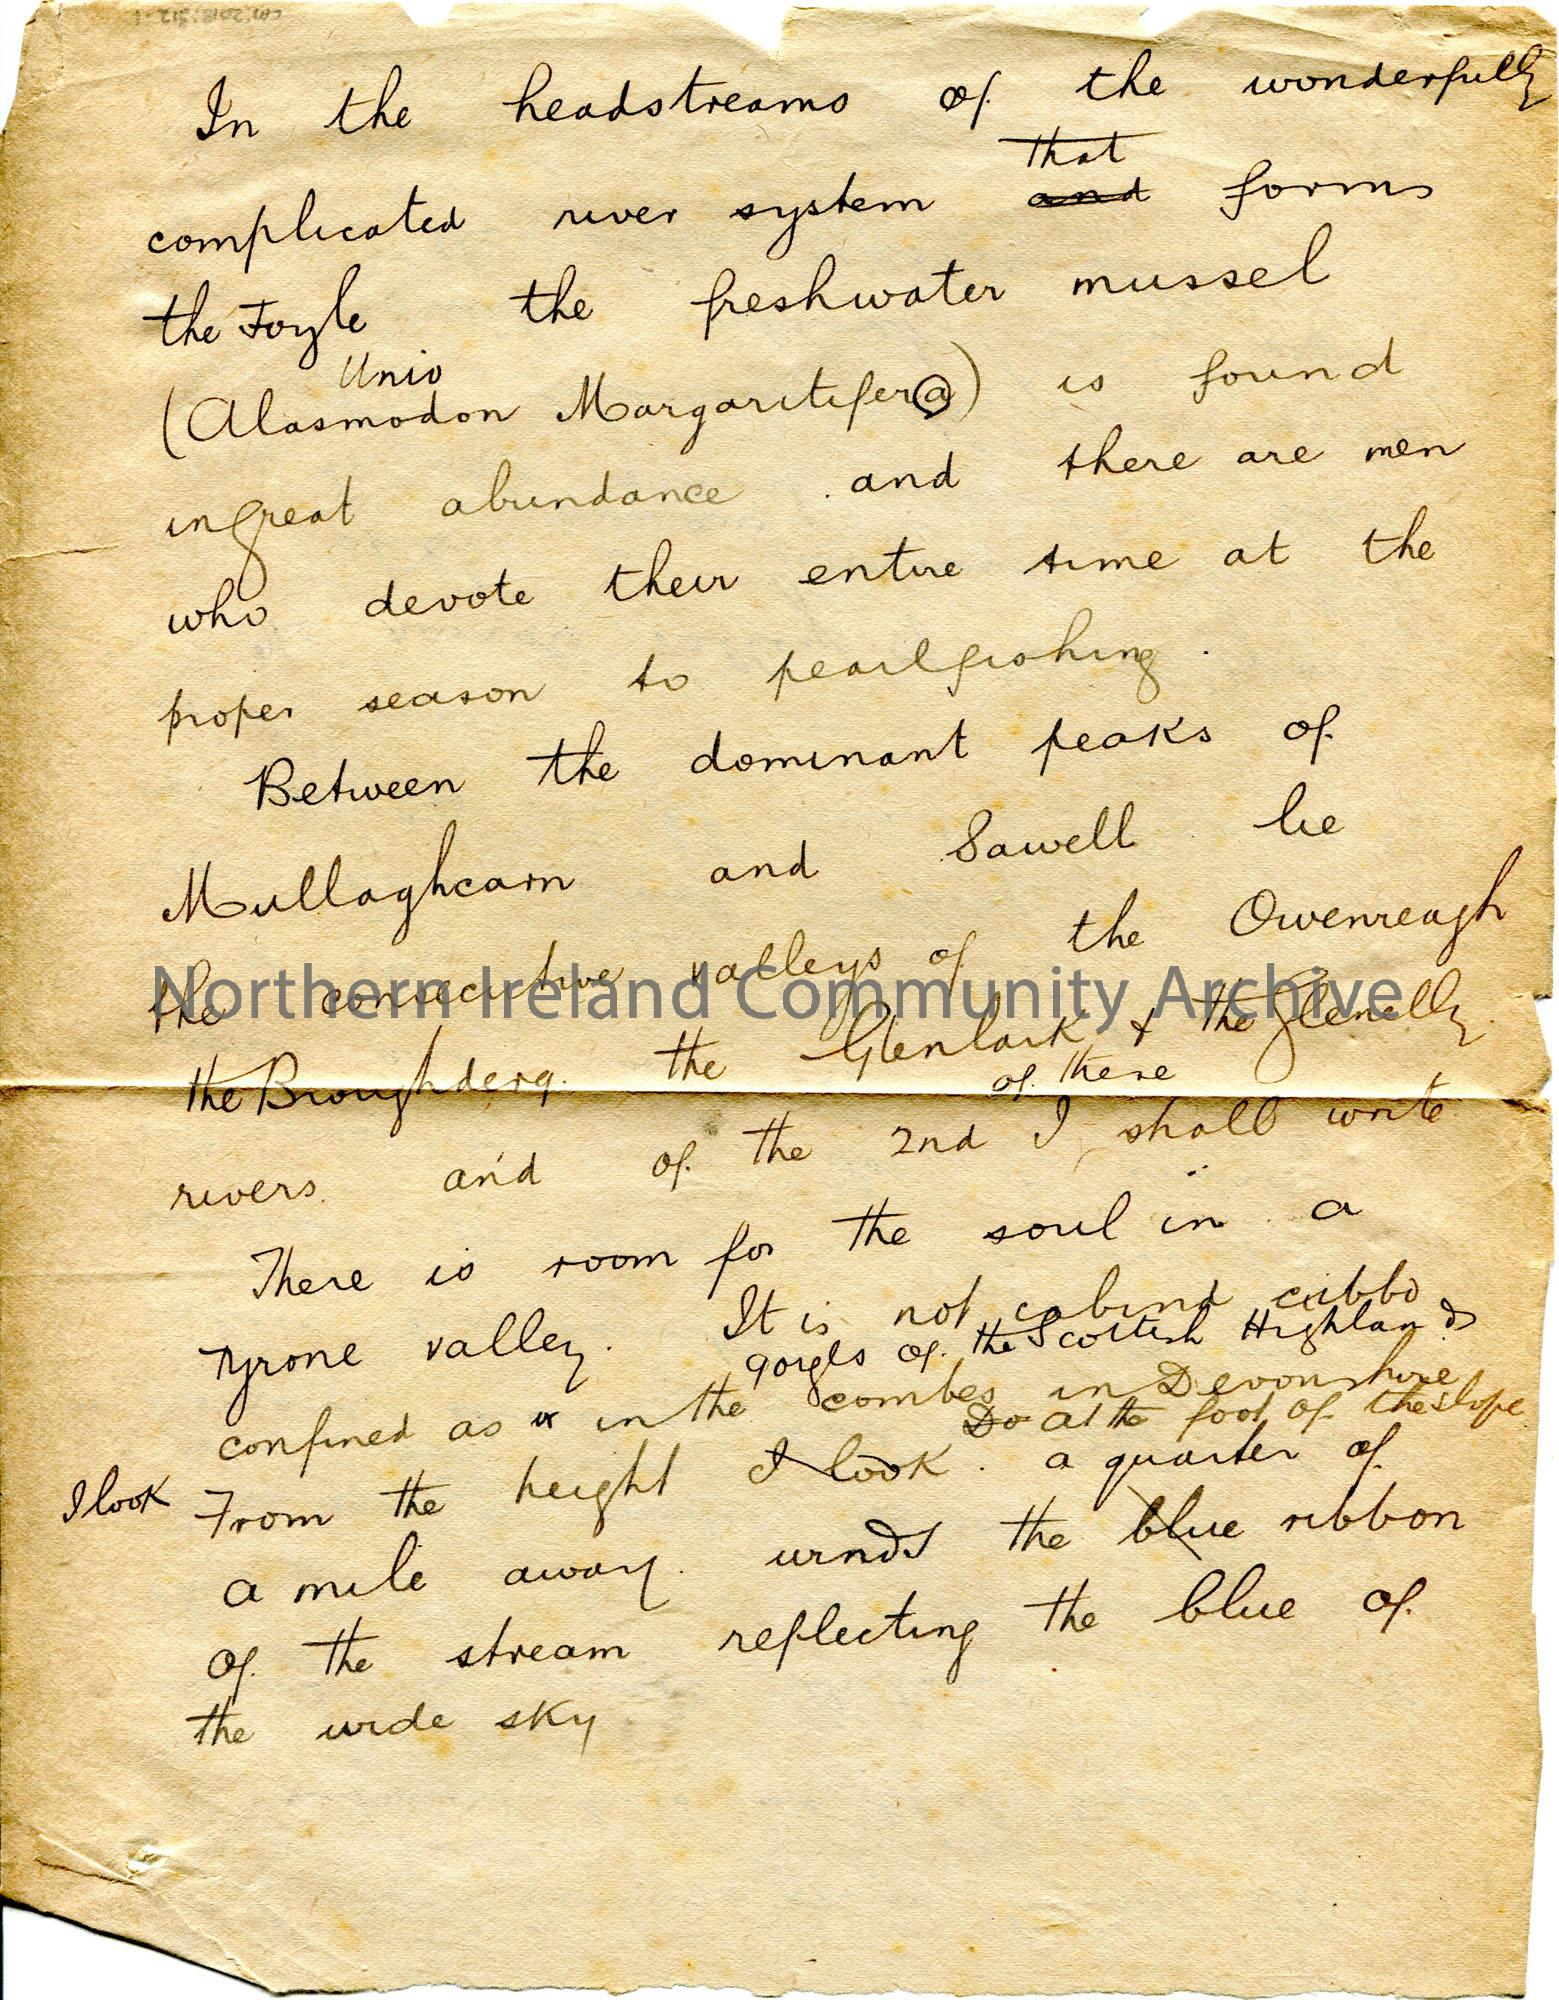 In the headstreams of the wonderfully
that
complicated river system and forms
the Foyle the freshwater mussel
Unio
(Alasmodon Margaritifera) is found
in great abundance and there are men
who devote their entire time at the
proper season to pearlfishing.
Between the dominant peaks of
Mullaghcarn and Sawell lie
the consecutive valleys of the Owenreagh
the Broughderg. the Glenlark & the Glenelly
of these
rivers. and of the 2nd I shall write
There is room for the soul in a
Tyrone valley. It is not cabind cribbd
gorges of the Scottish Highlands
confined as in the combes in Devonshire
Do At the foot of the slope
I look From the height I look. a quarter of
a mile away. winds the blue ribbon
of the stream reflecting the blue of
the wide sky
Northern Ireland Community Archive